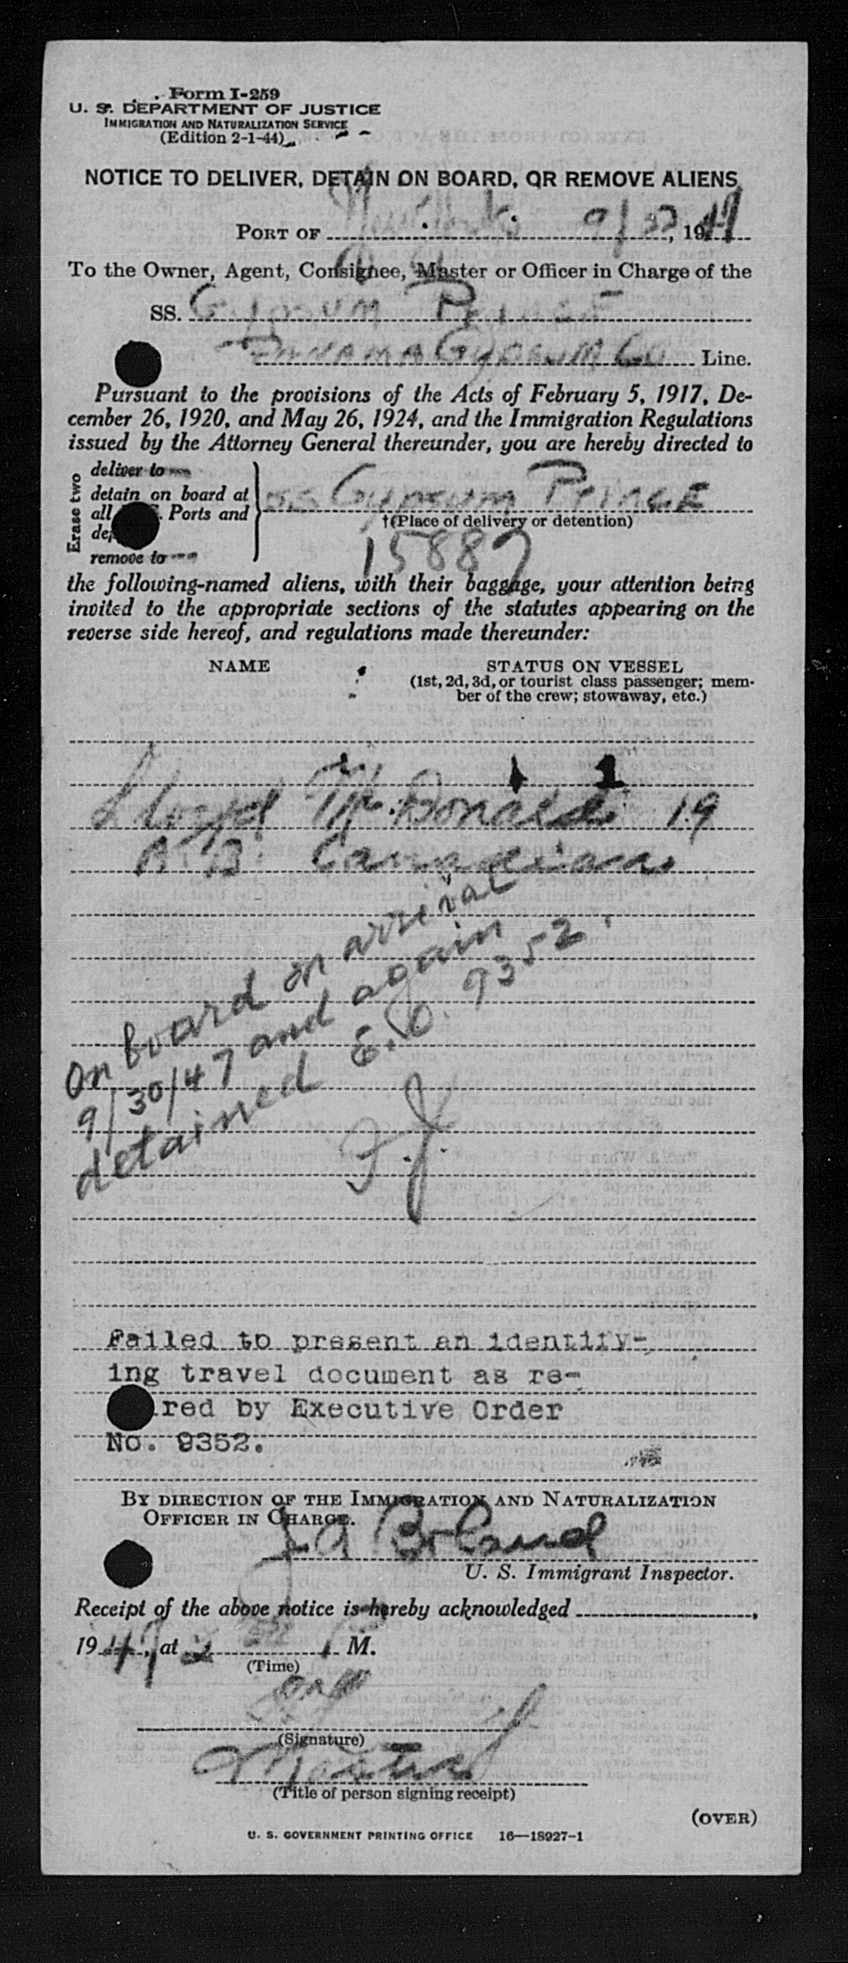 Form I-259
U. S. DEPARTMENT OF JUSTICE
IMMIGRATION AND NATURALIZATION SERVICE
(Edition 2-1-44)
NOTICE TO DELIVER, DETAIN ON BOARD, OR REMOVE ALIENS
PORT OF New York 9/22, 1947
To the Owner, Agent, Consignee, Master or Officer in Charge of the
SS. Gypsum Prince
Panama Gypsum Co Line.
Pursuant to the provisions of the Acts of February 5, 1917, De-
cember 26, 1920, and May 26, 1924, and the Immigration Regulations
issued by the Attorney General thereunder, you are hereby directed to
Erase two
deliver to
detain on board at
all Ports and
remove to
SS Gypsum Prince
†(Place of delivery or detention)
15887
the following-named aliens, with their baggage, your attention being
invited to the appropriate sections of the statutes appearing on the
reverse side hereof, and regulations made thereunder:
NAME STATUS ON VESSEL
(1st, 2d, 3d, or tourist class passenger; mem-
ber of the crew; stowaway, etc.)
Lloyd McDonald 19
A B Canadian
On board on arrival
9/30/47 and again
detained E.O. 9352.
F.J.
Failed to present an identify-
ing travel document as re-
red by Executive Order
No. 9352.
BY DIRECTION OF THE IMMIGRATION AND NATURALIZATION
OFFICER IN CHARGE.
J A Boland
U. S. Immigrant Inspector.
Receipt of the above notice is hereby acknowledged ,
1947, at M.
(Time)
(Signature)
Master
(Title of person signing receipt)
(OVER)
U. S. GOVERNMENT PRINTING OFFICE 16—18927-1